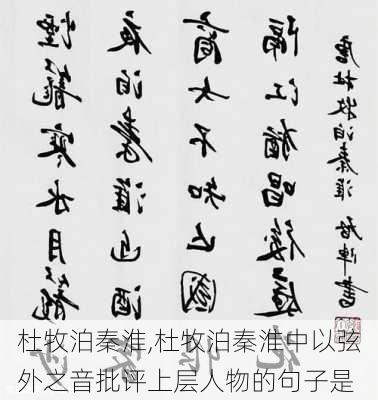 煙籠寒水月籠沙
夜泊秦淮近酒
商女不知亡國
隔江猶唱後庭花
唐杜牧泊秦淮 書
杜牧泊秦淮,杜牧泊秦淮中以弦
外之音批评上层人物的句子是